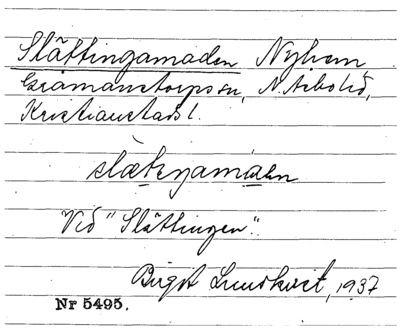 Slättingamaden Nyhem
Gråmanstorps sn, N. Åsbo hd,
Kristianstads l.
slætɩŋamáɛn
Vid "Slättingen".
Birgit Lundkvist, 1937
Nr 5495.